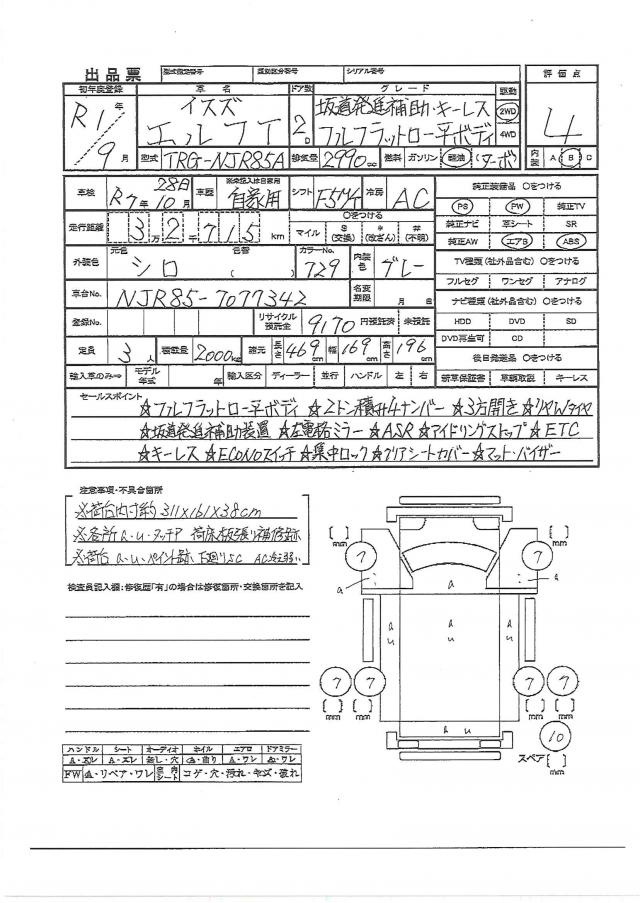 出品票 型式指定番号 類別区分番号 シリアル番号
評価点
初年度登録 車名 ドア数 グレード 駆動
R1年 9月
イスズ
エルフT
2D
坂道発進補助・キーレス
フルフラットロー平ボディ
2WD
4WD
4
型式 TRG-NJR85A 排気量 2990cc 燃料 ガソリン 軽油 ターボ
内装 A B C
車検 R7年 10月 28日 車歴 自家用 シフト F5MT 冷房 AC
純正装備品 ○をつける
PS PW 純正TV
走行距離 3万2715km マイル $(交換) *(改ざん) #(不明)
○をつける
純正ナビ 革シート SR
純正AW エアB ABS
外装色 元色 シロ 色替 ( ) カラーNo. 729 内装色 グレー
TV種類(社外品含む) ○をつける
フルセグ ワンセグ アナログ
車台No. NJR85-7077342 名変期限 月 日
ナビ種類(社外品含む) ○をつける
登録No. リサイクル預託金 9170円預託済 未預託
HDD DVD SD
DVD再生可 CD
定員 3人 積載量 2000kg 諸元 長さ 469cm 幅 169cm 高さ 196cm
後日発送品 ○をつける
輸入車のみ⇒ モデル年式 年 輸入区分 ディーラー 並行 ハンドル 左 右
新車保証書 車輌取説 キーレス
セールスポイント
☆フルフラットロー平ボディ ☆2トン積み4ナンバー ☆3方開き ☆リヤWタイヤ
☆坂道発進補助装置 ☆左電格ミラー ☆ASR ☆アイドリングストップ ☆ETC
☆キーレス ☆ECONOスイッチ ☆集中ロック ☆クリアシートカバー ☆マット・バイザー
注意事項・不具合箇所
※荷台内寸約 311×161×38cm
※各所 a・u・タッチア 荷床板張り補修跡
※荷台 a・u・ペイント跡 下廻りSC
検査員記入欄:修復歴「有」の場合は修復箇所・交換箇所を記入
[ ] mm
7
[ ] mm
7
a
a
a
a u
a u
a u
7 7
7 7
[ ] mm
[ ] mm
[ ] mm
[ ] mm
a u
10
スペア [ ] mm
ハンドル シート オーディオ ホイル エアロ ドアミラー
A・スレ A・スレ 無し・穴 A・曲り A・ワレ A・ワレ
FW A・リペア・ワレ 室内シート コゲ・穴・汚れ・キズ・破れ